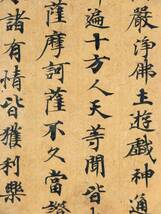 嚴淨佛土遊戲神通
遍十方人天等聞皆
薩摩訶薩不久當證
諸有情皆獲利樂